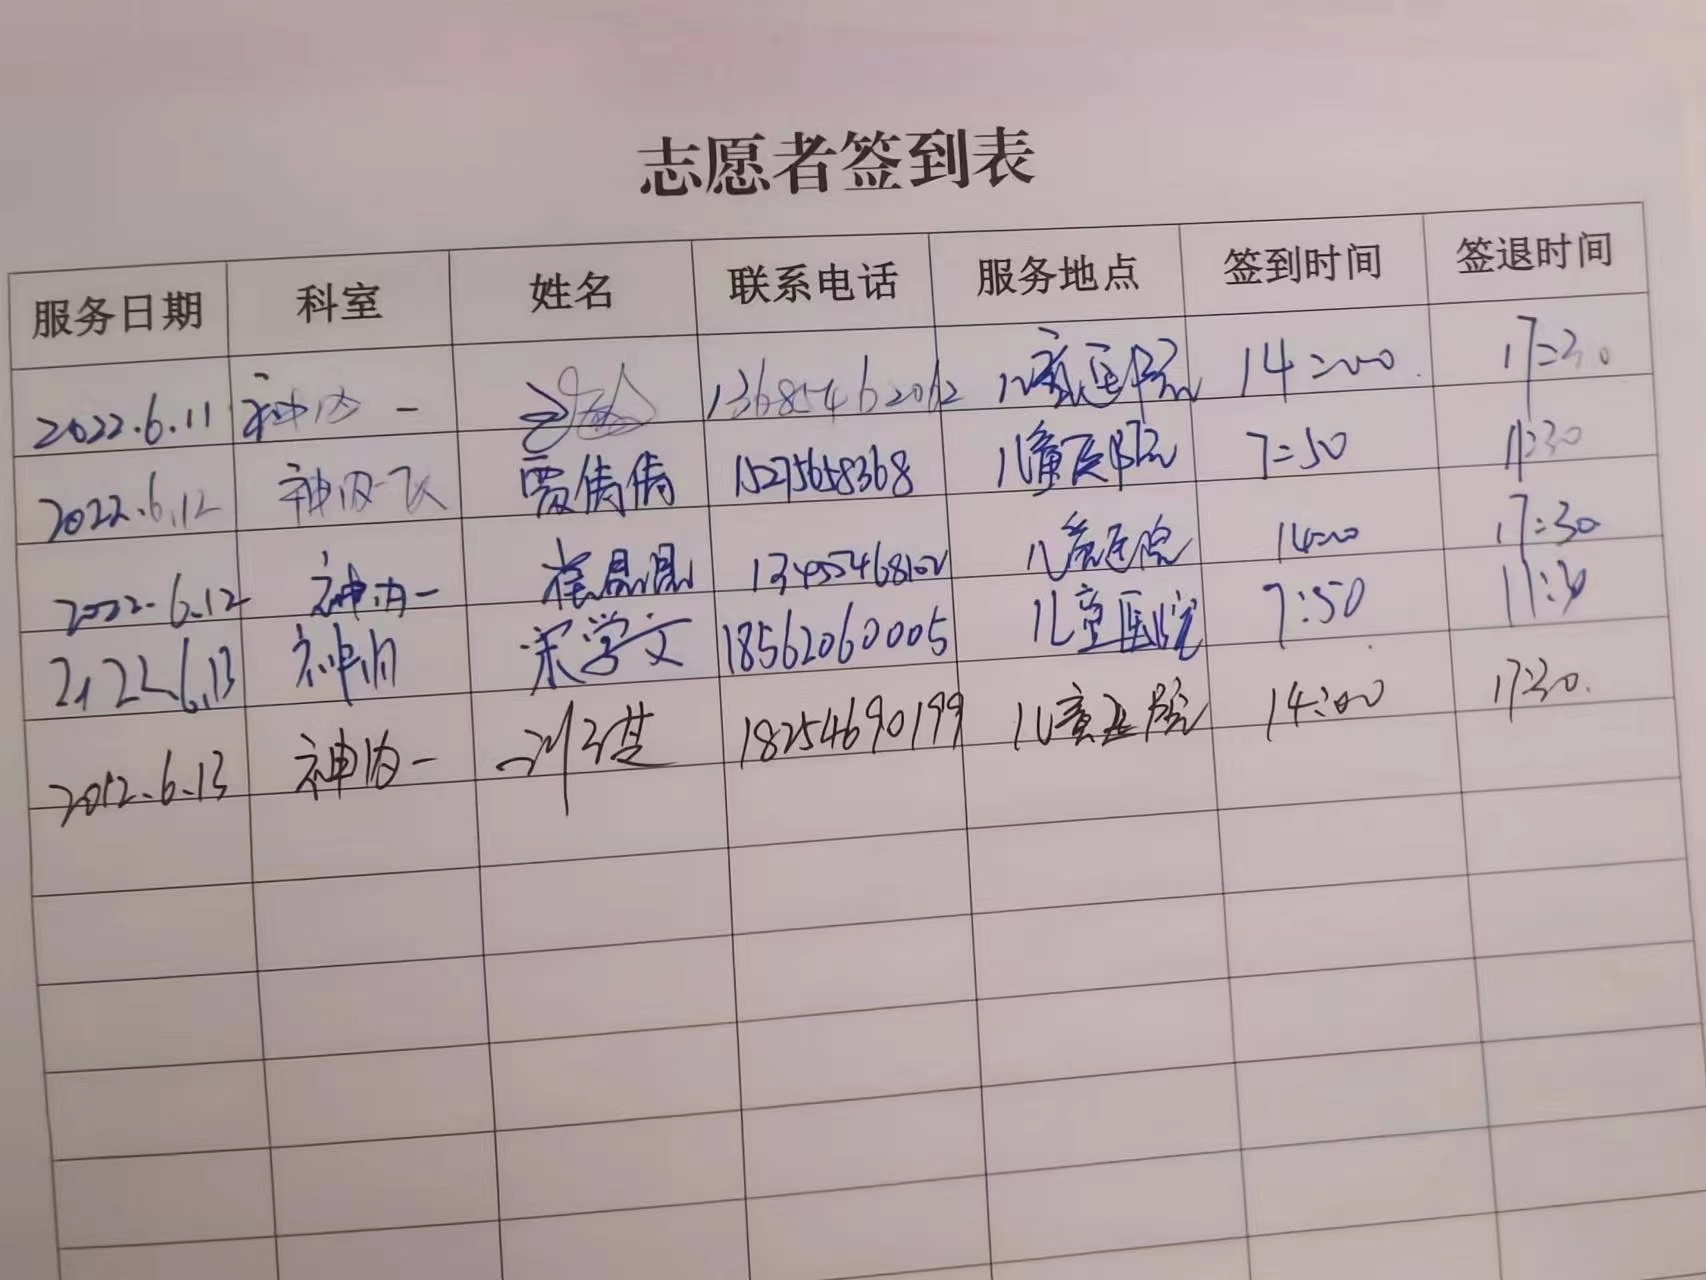 志愿者签到表
服务日期 科室 姓名 联系电话 服务地点 签到时间 签退时间
2022.6.11 神内一 13685462062 儿童医院 14:00 17:30
2022.6.12 神内一 贾倩倩 15275658368 儿童医院 7:50 11:30
2022.6.12 神内一 崔晶晶 儿童医院 14:00 17:30
2022.6.13 神内 宋学文 18562060005 儿童医院 7:50 11:30
2012.6.13 神内一 18254690199 儿童医院 14:00 17:30